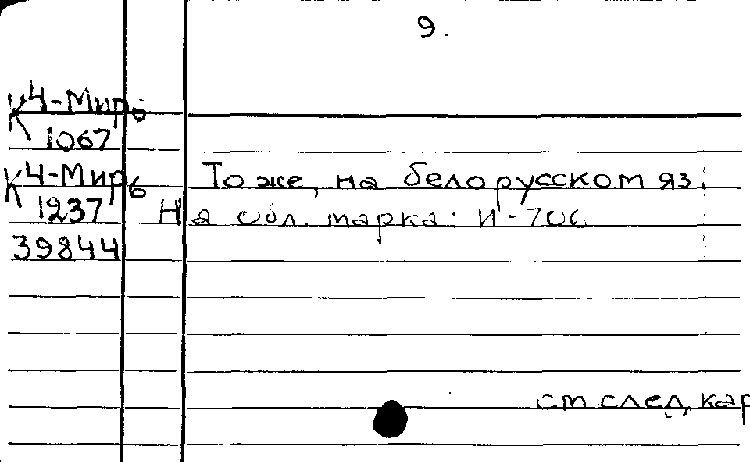 9.
К4-Миръ
1067
К4-Миръ То же, на белорусском яз.
1237 На обл. марка: И-706
39844
см след. кар